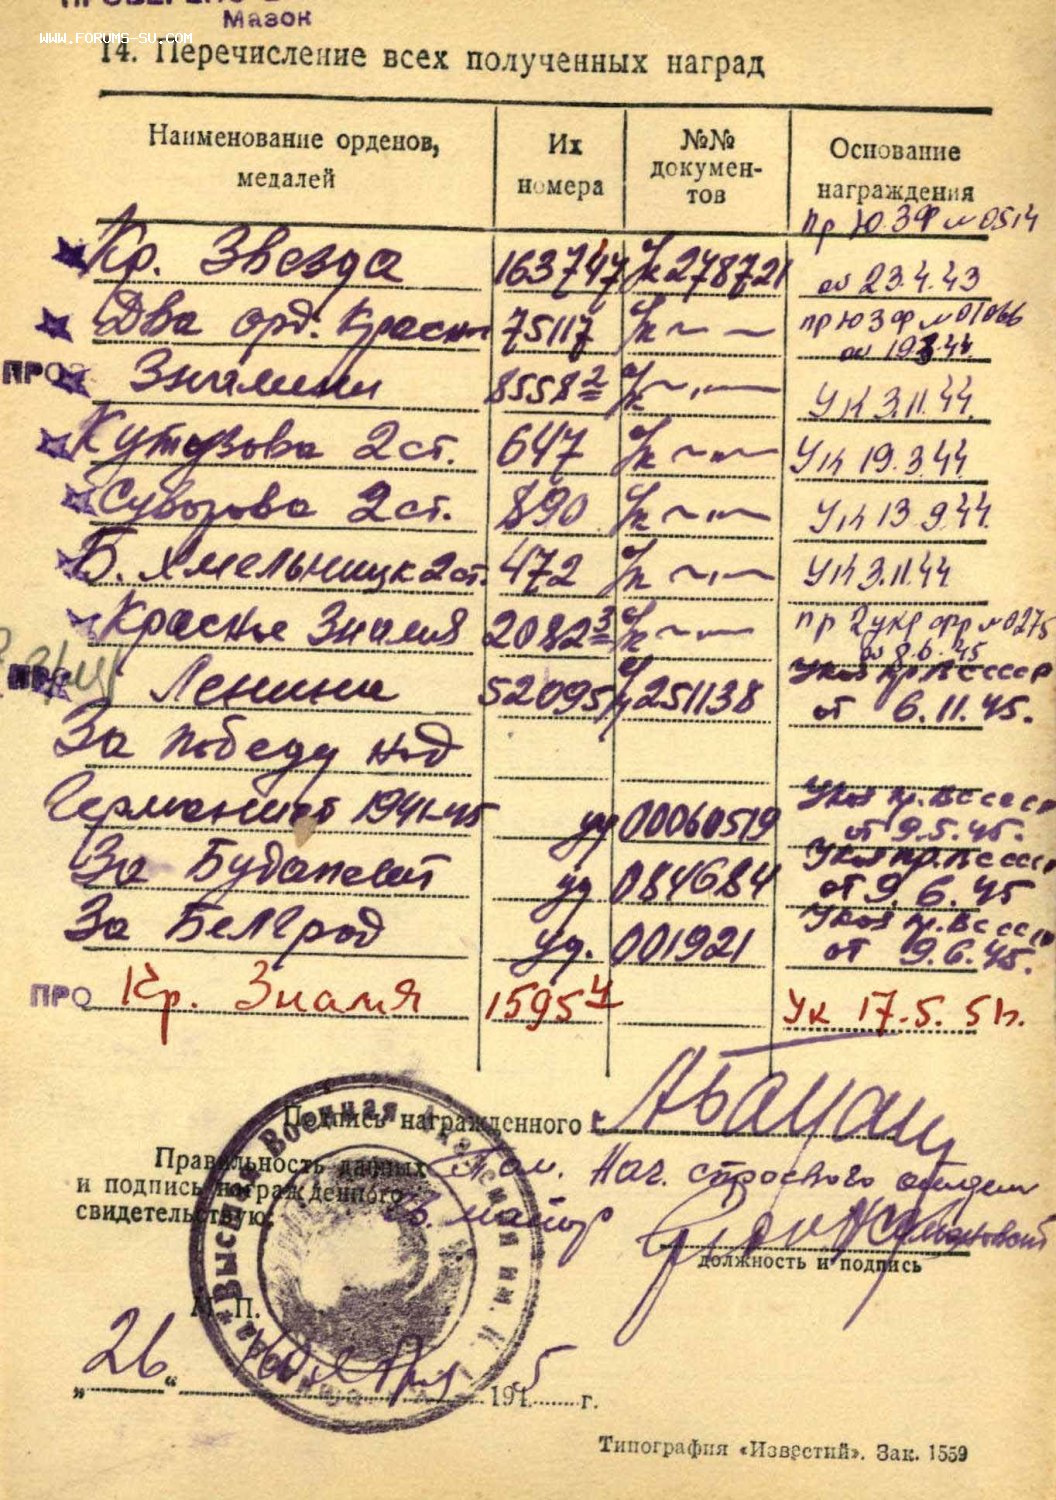 ПРОВЕРЕНО
Мазок
WWW.FORUMS-SU.COM
14. Перечисление всех полученных наград
Наименование орденов, медалей | Их номера | №№ документов | Основание награждения
Кр. Звезда | 163747 | Ук 278721 | Пр Ю.ЗФ №0514 от 23.4.43
Два орд. Красн | 75117 | Ук ~ ~ | пр ЮЗФ №01066
Знамени | 8558 2 | Ук ~ " ~ | Ук 3.11.44.
Кутузова 2 ст. | 647 | Ук ~ " ~ | Ук 19.3.44
Суворова 2 ст. | 890 | Ук ~ " ~ | Ук 13 9.44.
Б. Хмельницк 2 ст. | 472 | Ук ~ " ~ | Ук 3.11.44
Красное Знамя | 2082 3 | Ук ~ " ~ | пр 2 укр фр №0275
ПРО Ленина | 52095 | 251138 | Указ Пр. ВС СССР от 6.11.45.
За победу над
Германией 1941-45 | уд 00060519 | Указ Пр. ВС СССР от 9.5.45.
За Будапешт | уд 084684 | Указ Пр. ВС СССР от 9.6.45
За Белград | уд. 001921 | Указ Пр. ВС СССР от 9.6.45.
ПРО Кр. Знамя | 1595 4 | Ук 17.5.51г.
Подпись награжденного
Правильность данных Пом. Нач. строевого отдела
и подпись награжденного
свидетельствую: майор
должность и подпись
Высшая Военная Академия им. К.
М. П.
„26“ ноября 1945 г.
Типография «Известий». Зак. 1559